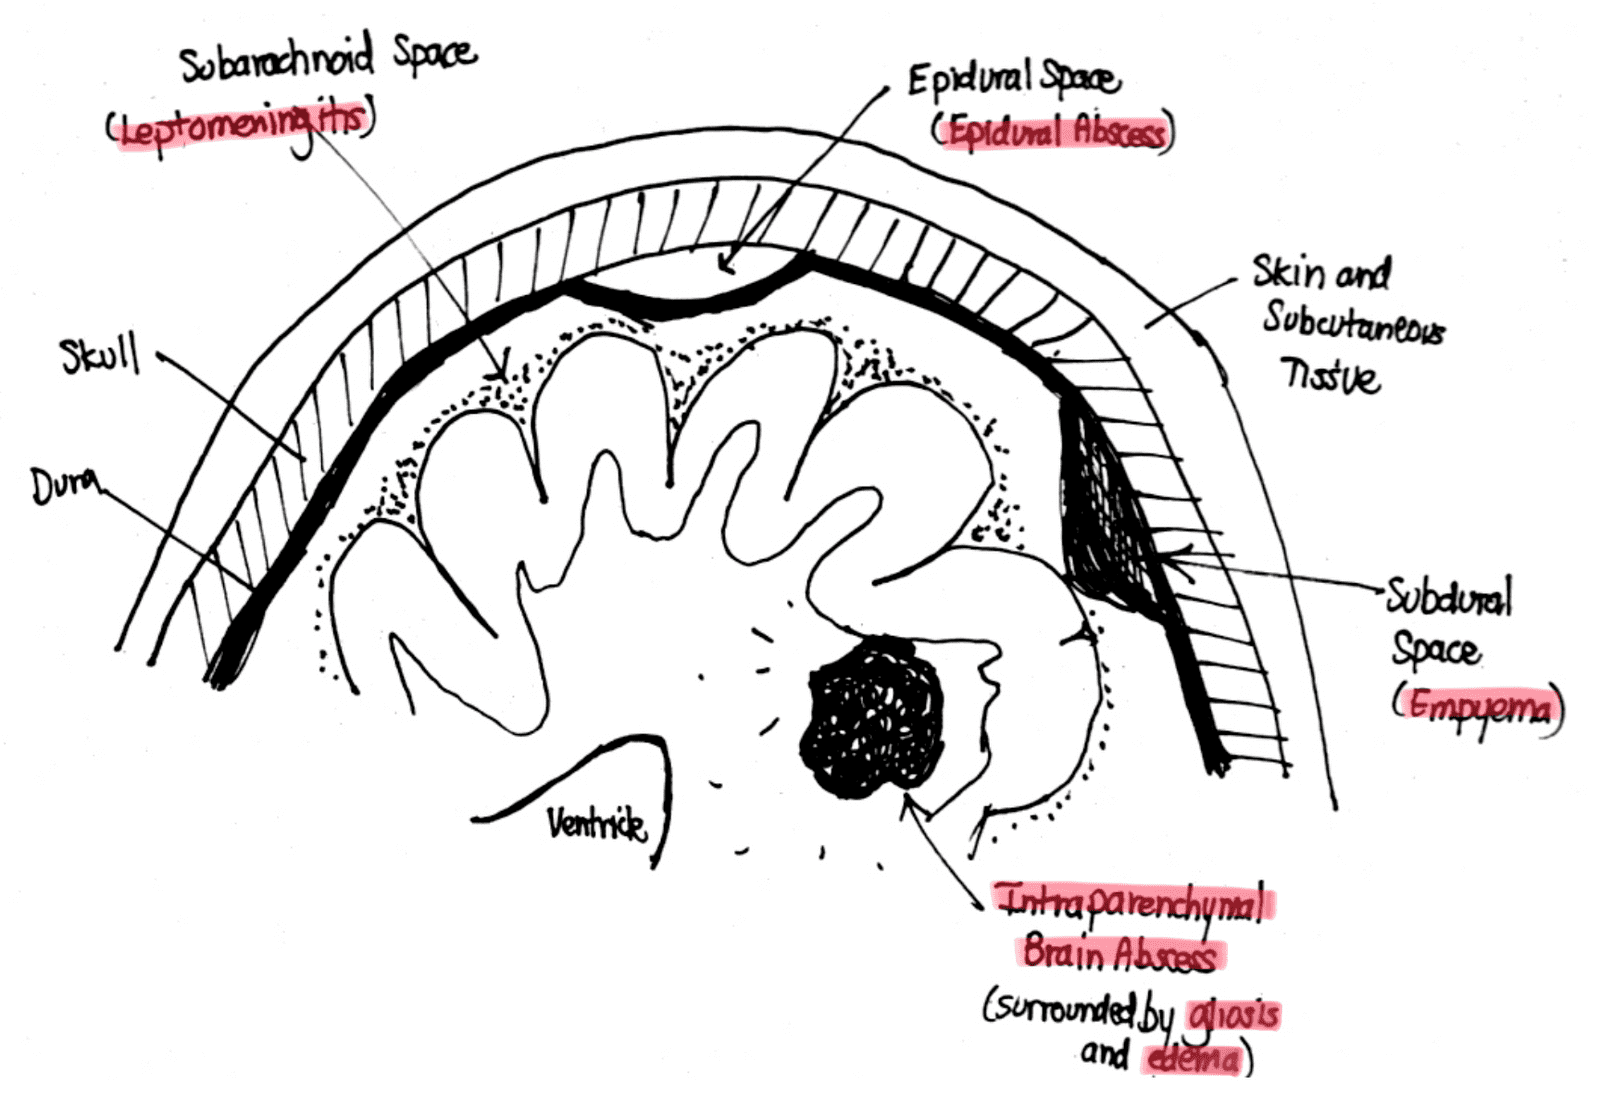 Subarachnoid Space
(Leptomeningitis)
Epidural Space
(Epidural Abscess)
Skin and
Subcutaneous
Tissue
Skull
Dura
Subdural
Space
(Empyema)
Ventricle
Intraparenchymal
Brain Abscess
(surrounded by gliosis
and edema)